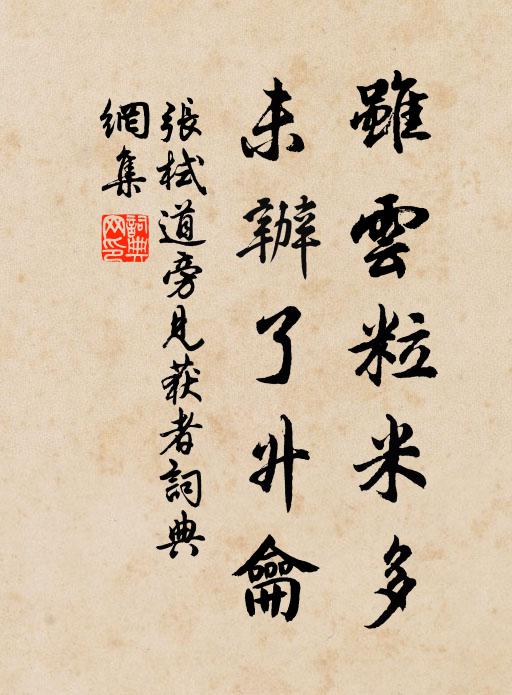 雖雲粒米多
未辦了升龠
張栻道旁見获者詞典
網集
詞典網印